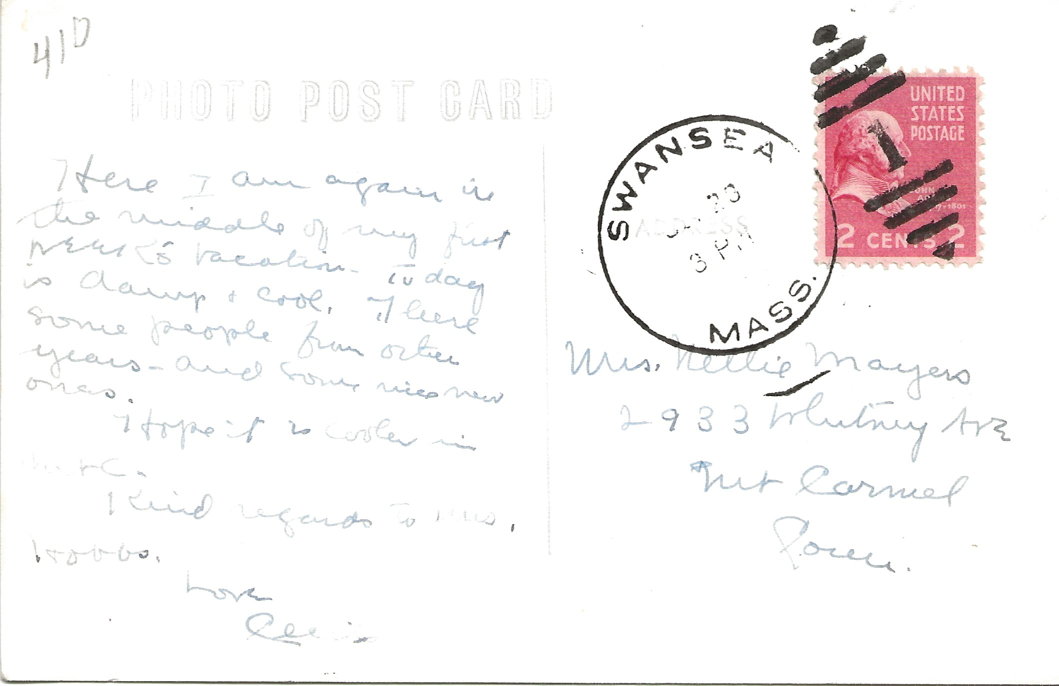 41D
PHOTO POST CARD
Here I am again in
the middle of my first
WEEK'S vacation - Today
is damp & cool. There
some people from other
years - and some nice new
ones.
Hope it is cooler in
Mt C.
Kind regards to Mrs.
Hobbs.
Love
UNITED
STATES
POSTAGE
JOHN
2 CENTS 2
1
SWANSEA
20
ADDRESS
3 PM
MASS.
Mrs. Nellie Mayers
2933 Whitney AVE
Mt Carmel
Conn.